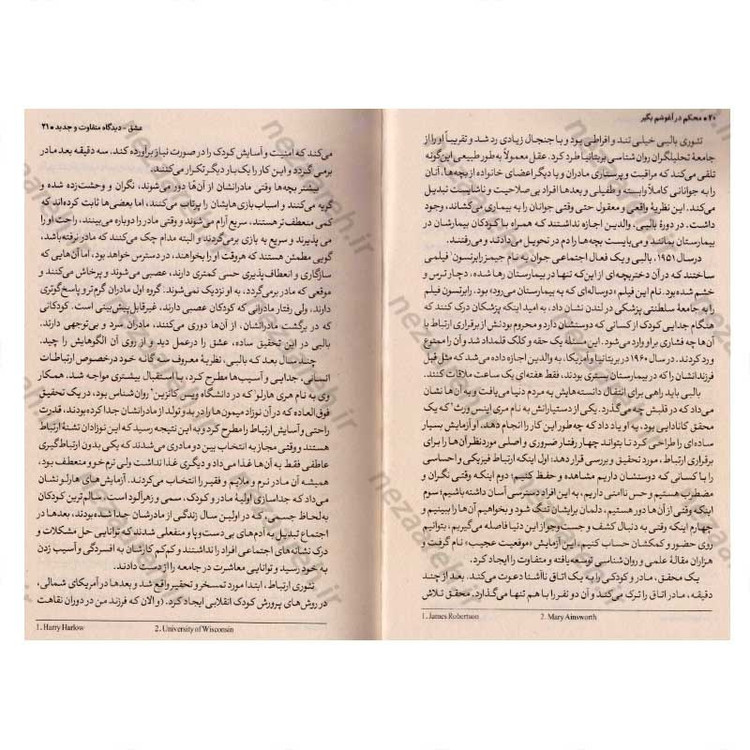 ۲۰ • محکم در آغوشم بگیر
تئوری بالبی خیلی تند و افراطی بود و با جنجال زیادی رد شد و تقریباً او را از
جامعهٔ تحلیلگران روان‌شناسی بریتانیا طرد کرد. عقل معمولاً به‌طور طبیعی این‌گونه
تلقی می‌کند که مراقبت و پرستاری مادران و یا دیگر اعضای خانواده از بچه‌ها، آنان
را به جوانانی کاملاً وابسته و طفیلی و بعدها افراد بی‌صلاحیت و ناشایست تبدیل
کند. این نظریهٔ واقعی و معقول حتی وقتی جوانان را به بیماری می‌کشاند، وجود
داشت. در دورهٔ بالبی، والدین اجازه نداشتند که همراه با کودکان بیمارشان در
بیمارستان بمانند و می‌بایست بچه‌ها را دم در تحویل می‌دادند و می‌رفتند.
در سال ۱۹۵۱، بالبی و یک فعال اجتماعی جوان به نام جیمز رابرتسون۱ فیلمی
ساختند که در آن دختربچه‌ای از این‌که تنها در بیمارستان رها شده، دچار ترس و
خشم شده بود. نام این فیلم «دوساله‌ای که به بیمارستان می‌رود» بود. رابرتسون فیلم
را به جامعهٔ سلطنتی پزشکی در لندن نشان داد، به امید اینکه پزشکان درک کنند که
هنگام جدایی کودک از کسانی که دوستشان دارد و محروم بودنش از برقراری ارتباط با
آن‌ها چه فشاری بر او وارد می‌شود. این مسئله یک حقه و کلک قلمداد شد و آن را ممنوع
ورد کردند. در سال ۱۹۶۰ در بریتانیا و آمریکا، به والدین اجازه داده می‌شد که مثل قبل
فرزندانشان را که در بیمارستان بستری بودند، فقط هفته‌ای یک ساعت ملاقات کنند.
بالبی باید راهی برای انتقال دانسته‌هایش به مردم دنیا می‌یافت و به آنان نشان
می‌داد که در قلبش چه می‌گذرد. یکی از دستیارانش به نام مری اینس ورث۲ که یک
محقق کانادایی بود، به او یاد داد که چه‌طور این کار را انجام دهد. او آزمایش بسیار
ساده‌ای را طراحی کرد تا بتواند چهار رفتار ضروری و اصلی موردنظر آن‌ها را برای
برقراری ارتباط، مورد تحقیق و بررسی قرار دهد: اول اینکه ارتباط فیزیکی و احساسی
را با کسانی که دوستشان داریم مشاهده و حفظ کنیم؛ دوم اینکه وقتی نگران و
مضطرب هستیم و حس ناامنی داریم، به این افراد دسترسی آسان داشته باشیم؛ سوم
اینکه وقتی از آن‌ها دور هستیم، دلمان برایشان تنگ شود و بخواهیم آن‌ها را ببینیم و
چهارم اینکه وقتی به دنبال کشف و جست‌وجو از این دنیا فاصله می‌گیریم، بتوانیم
روی حضور و کمکشان حساب کنیم. این آزمایش «موقعیت عجیب» نام گرفت و
هزاران مقالهٔ علمی و روان‌شناسی توسعه‌یافته و متفاوت را ایجاد کرد.
یک محقق، مادر و کودکی را به یک اتاق ناآشنا دعوت می‌کند. بعد از چند
دقیقه، مادر اتاق را ترک می‌کند و آن دو نفر را با هم تنها می‌گذارد. محقق تلاش
1. James Robertson 2. Mary Ainsworth
عشق - دیدگاه متفاوت و جدید • ۲۱
می‌کند که امنیت و آسایش کودک را در صورت نیاز برآورده کند. سه دقیقه بعد مادر
برمی‌گردد و این کار را یک بار دیگر تکرار می‌کنند.
بیشتر بچه‌ها وقتی مادرانشان از آن‌ها دور می‌شوند، نگران و وحشت‌زده شده و
گریه می‌کنند و اسباب‌بازی‌هایشان را پرتاب می‌کنند، اما بعضی‌ها ثابت کرده‌اند که
کمی منعطف‌تر هستند، سریع آرام می‌شوند و وقتی مادر را دوباره می‌بینند، راحت او را
می‌پذیرند و سریع به بازی برمی‌گردند و البته مدام چک می‌کنند که مادر نرفته باشد.
گویی مطمئن هستند که هر وقت او را بخواهند، در دسترس خواهد بود، اما آن‌هایی که
سازگاری و انعطاف‌پذیری حسی کمتری دارند، عصبی می‌شوند و پرخاش می‌کنند و
موقعی که مادر برمی‌گردد، به او نزدیک نمی‌شوند. گروه اول مادران گرم‌تر و پاسخ‌گوتری
دارند، ولی رفتار مادرانی که کودکان عصبی دارند، غیرقابل پیش‌بینی است. کودکانی
که در برگشت مادرانشان، از آن‌ها دوری می‌کنند، مادران سرد و بی‌توجهی دارند.
بالبی در این تحقیق ساده، عشق را در عمل دید و از روی آن الگوهایش را چید.
چند سال بعد که بالبی، نظریهٔ معروف سه‌گانه خود در خصوص ارتباطات
انسانی، جدایی و آسیب‌ها مطرح کرد، با استقبال بیشتری مواجه شد. همکار
وی به نام هری هارلو۱ که در دانشگاه ویس کانزین۲ روان‌شناس بود، در یک تحقیق
فوق‌العاده که در آن نوزاد میمون‌ها را در بدو تولد از مادرانشان جدا کرده بودند، قدرت
راحتی و آسایش ارتباط را مطرح کرد و به این نتیجه رسید که این نوزادان تشنهٔ ارتباط
هستند و وقتی مجاز به انتخاب بین دو مادری می‌شدند که یکی بدون ارتباط‌گیری
عاطفی فقط به آن‌ها غذا می‌داد و دیگری غذا نداشت ولی نرم‌خو و منعطف بود،
همیشه آن مادر نرم و ملایم و فقیر را انتخاب می‌کردند. آزمایش‌های هارلو نشان
می‌داد که جداسازی اولیهٔ مادر و کودک، سمی و زهرآلود است. سالم‌ترین کودکان
به‌لحاظ جسمی، که در اولین سال زندگی از مادرشان جدا شده بودند، بعدها در
اجتماع تبدیل به آدم‌های بی‌دست‌وپا و منفعلی شدند که توانایی حل مشکلات و
درک نشانه‌های اجتماعی افراد را نداشتند و کم‌کم کارشان به افسردگی و آسیب زدن
به خود رسید و توانایی معاشرت در جامعه را از دست دادند.
تئوری ارتباط، ابتدا مورد تمسخر و تحقیر واقع شد و بعدها در آمریکای شمالی،
در روش‌های پرورش کودک انقلابی ایجاد کرد. (و الان که فرزند من در دوران نقاهت
1. Harry Harlow 2. University of Wisconsin
nezaareh.ir